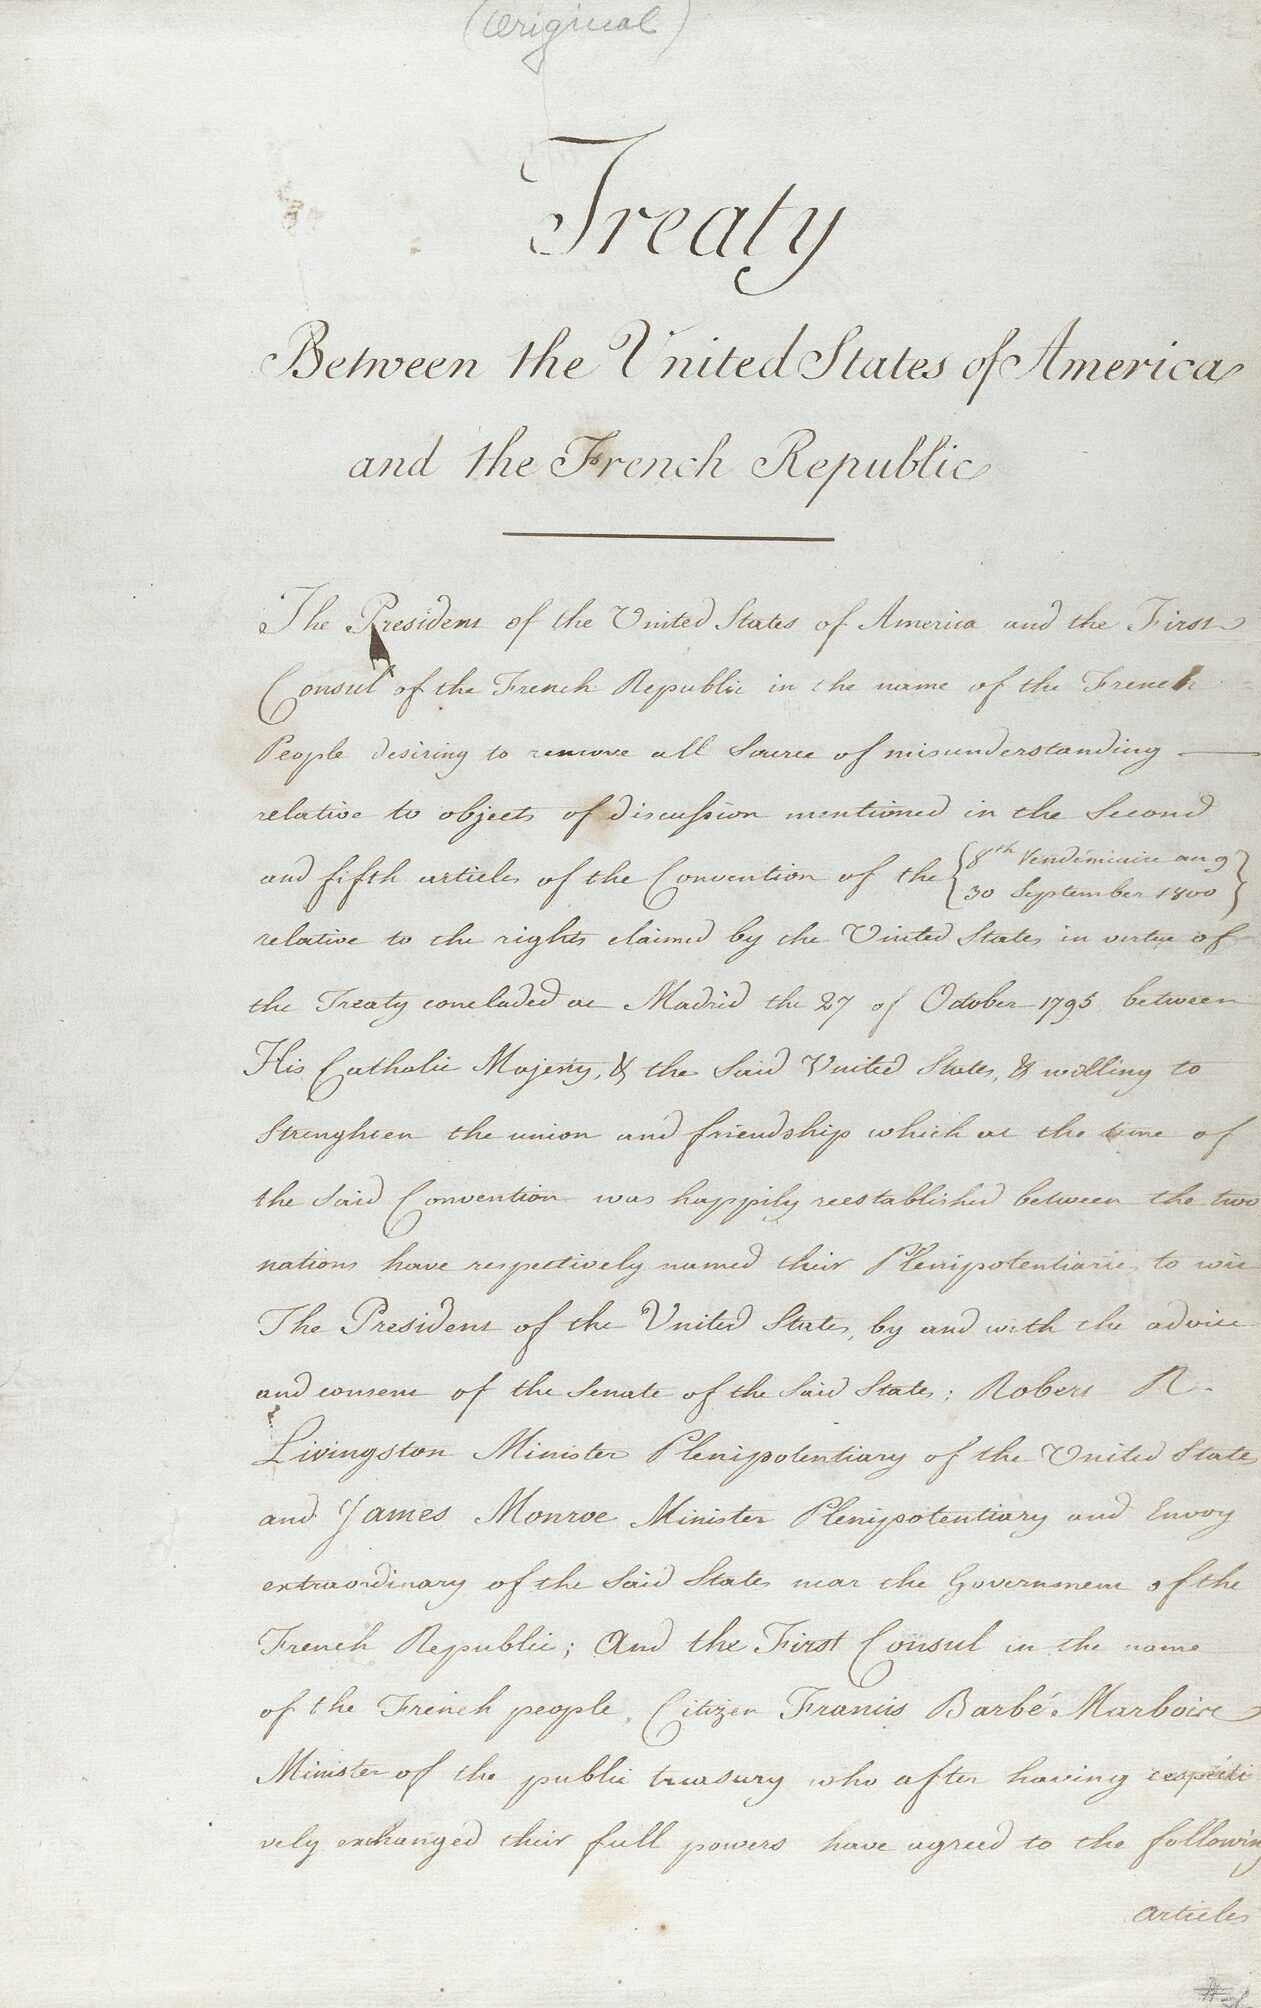 (Original)
Treaty
Between the United States of America
and the French Republic
The President of the United States of America and the First
Consul of the French Republic in the name of the French
People desiring to remove all Source of misunderstanding —
relative to objects of discussion mentioned in the Second
and fifth articles of the Convention of the {8th Vendémiaire an 9
30 September 1800}
relative to the rights claimed by the United States in virtue of
the Treaty concluded at Madrid the 27 of October 1795, between
His Catholic Majesty, & the Said United States, & willing to
Strenghten the union and friendship which at the time of
the Said Convention was happily reestablished between the two
nations have respectively named their Plenipotentiaries to wit
The President of the United States, by and with the advice
and consent of the Senate of the Said States; Robert R.
Livingston Minister Plenipotentiary of the United States
and James Monroe Minister Plenipotentiary and Envoy
extraordinary of the Said States near the Government of the
French Republic; And the First Consul in the name
of the French people, Citizen Francis Barbé Marbois
Minister of the public treasury who after having respecti
vely exchanged their full powers have agreed to the following
articles